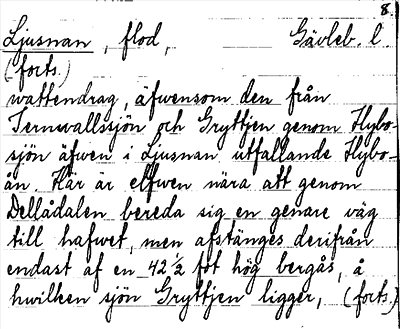 8.
Ljusnan, flod, Gävleb. l.
(forts.)
wattendrag, äfwensom den från
Ternwallssjön och Gryttjen genom Hybo-
sjön äfwen i Ljusnan utfallande Hybo-
ån. Här är elfwen nära att genom
Dellådalen bereda sig en genare väg
till hafwet, men afstänges derifrån
endast af en 42 1/2 fot hög bergås, å
hwilken sjön Gryttjen ligger, (forts.)